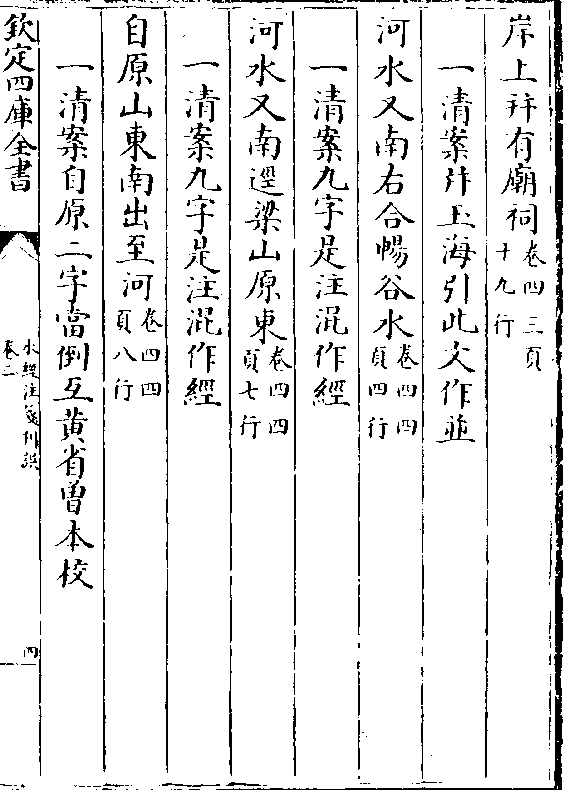 岸上幷有廟祠卷四三頁十九行
一清案幷玉海引此文作並
河水又南右合暢谷水卷四四頁四行
一清案九字是注混作經
河水又南逕梁山原東卷四四頁七行
一清案九字是注混作經
自原山東南出至河卷四四頁八行
一清案自原二字當倒互黄省曾本校
欽定四庫全書
水經注箋刋誤
卷二
四